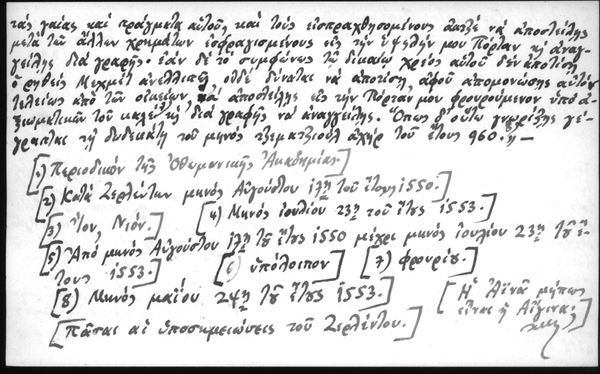 τὰς γαίας καὶ πράγματα αὐτοῦ, καὶ τοὺς εἰσπραχθησομένους νὰ ἀποστείλῃς
μετὰ τῶν ἄλλων χρημάτων ἐσφραγισμένους εἰς τὴν ὑψηλήν μου Πόρταν κὴ ἀναγ-
γείλῃς διὰ γραφῆς. ἐὰν δὲ τὸ συμφώνως τῷ δικαίῳ χρέος αὐτοῦ δὲν ἀποτίσῃ
ὁ ῥηθεὶς Μεχμὲτ οὐδὲ δύναται νὰ ἀποτίσῃ, ἀφοῦ ἀπομονώσῃς αὐτὸν
τελείως ἀπὸ τῶν οἰκείων, νὰ ἀποστείλῃς εἰς τὴν Πόρταν μου φρουρούμενον ὑπὸ ἀ-
ξιωματικῶν τοῦ κὴ διὰ γραφῆς νὰ ἀναγγείλῃς. Ὅπως δ' οὕτω γνωρίζῃς γέ-
γραπται τῇ δωδεκάτῃ τοῦ μηνὸς τζεματζιοὺλ ἀχὴρ τοῦ ἔτους 960.
[1) Περιοδικὸν τῆς Ὀθωμανικῆς Ἀκαδημίας.]
[2) Κατὰ Ζερλέντην μηνὸς Αὐγούστου 18ῃ τοῦ ἔτους 1550.]
[3) Ἴον, Νιόν.] [4) Μηνὸς ἰουλίου 23ῃ τοῦ ἔτους 1553.]
[5) Ἀπὸ μηνὸς Αὐγούστου 18ῃ τοῦ ἔτους 1550 μέχρι μηνὸς ἰουλίου 23ῃ τοῦ ἔ-
τους 1553.] [6) ὑπόλοιπον] [7) φρουρίου.]
[8) Μηνὸς μαΐου 24ῃ τοῦ ἔτους 1553.] [Ἡ Ἀϊνᾶ μήπως
[Πᾶσαι αἱ ὑποσημειώσεις τοῦ Ζερλέντου.] εἶναι ἡ Αἴγινα;]